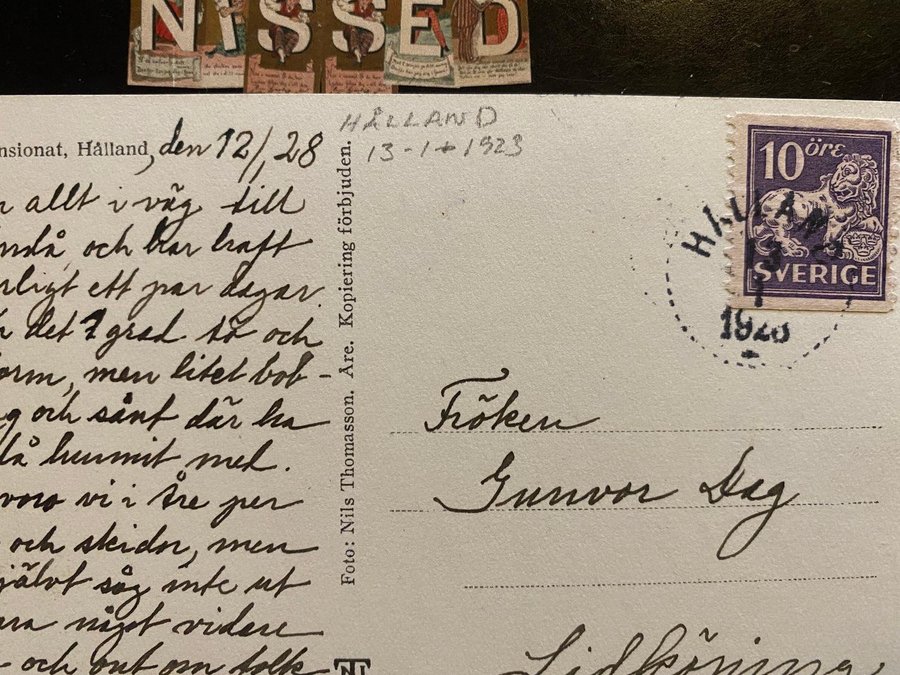 NISSED
nsionat, Hålland, den 12/1, 28
n allt i väg till
ndå, och har haft
rligt ett par dagar.
det 7 grad tö och
orm, men litet bob-
g och sånt där ha
då hunnit med.
voro vi i Åre per
och skidor, men
självt såg inte ut
ara något vidare
och ont om folk
Foto: Nils Thomasson. Åre. Kopiering förbjuden.
NT
HÅLLAND
13-1-1923
10 ÖRE
SVERIGE
HÅLLAND
13
1
1928
Fröken
Gunvor Dag
Lidköping